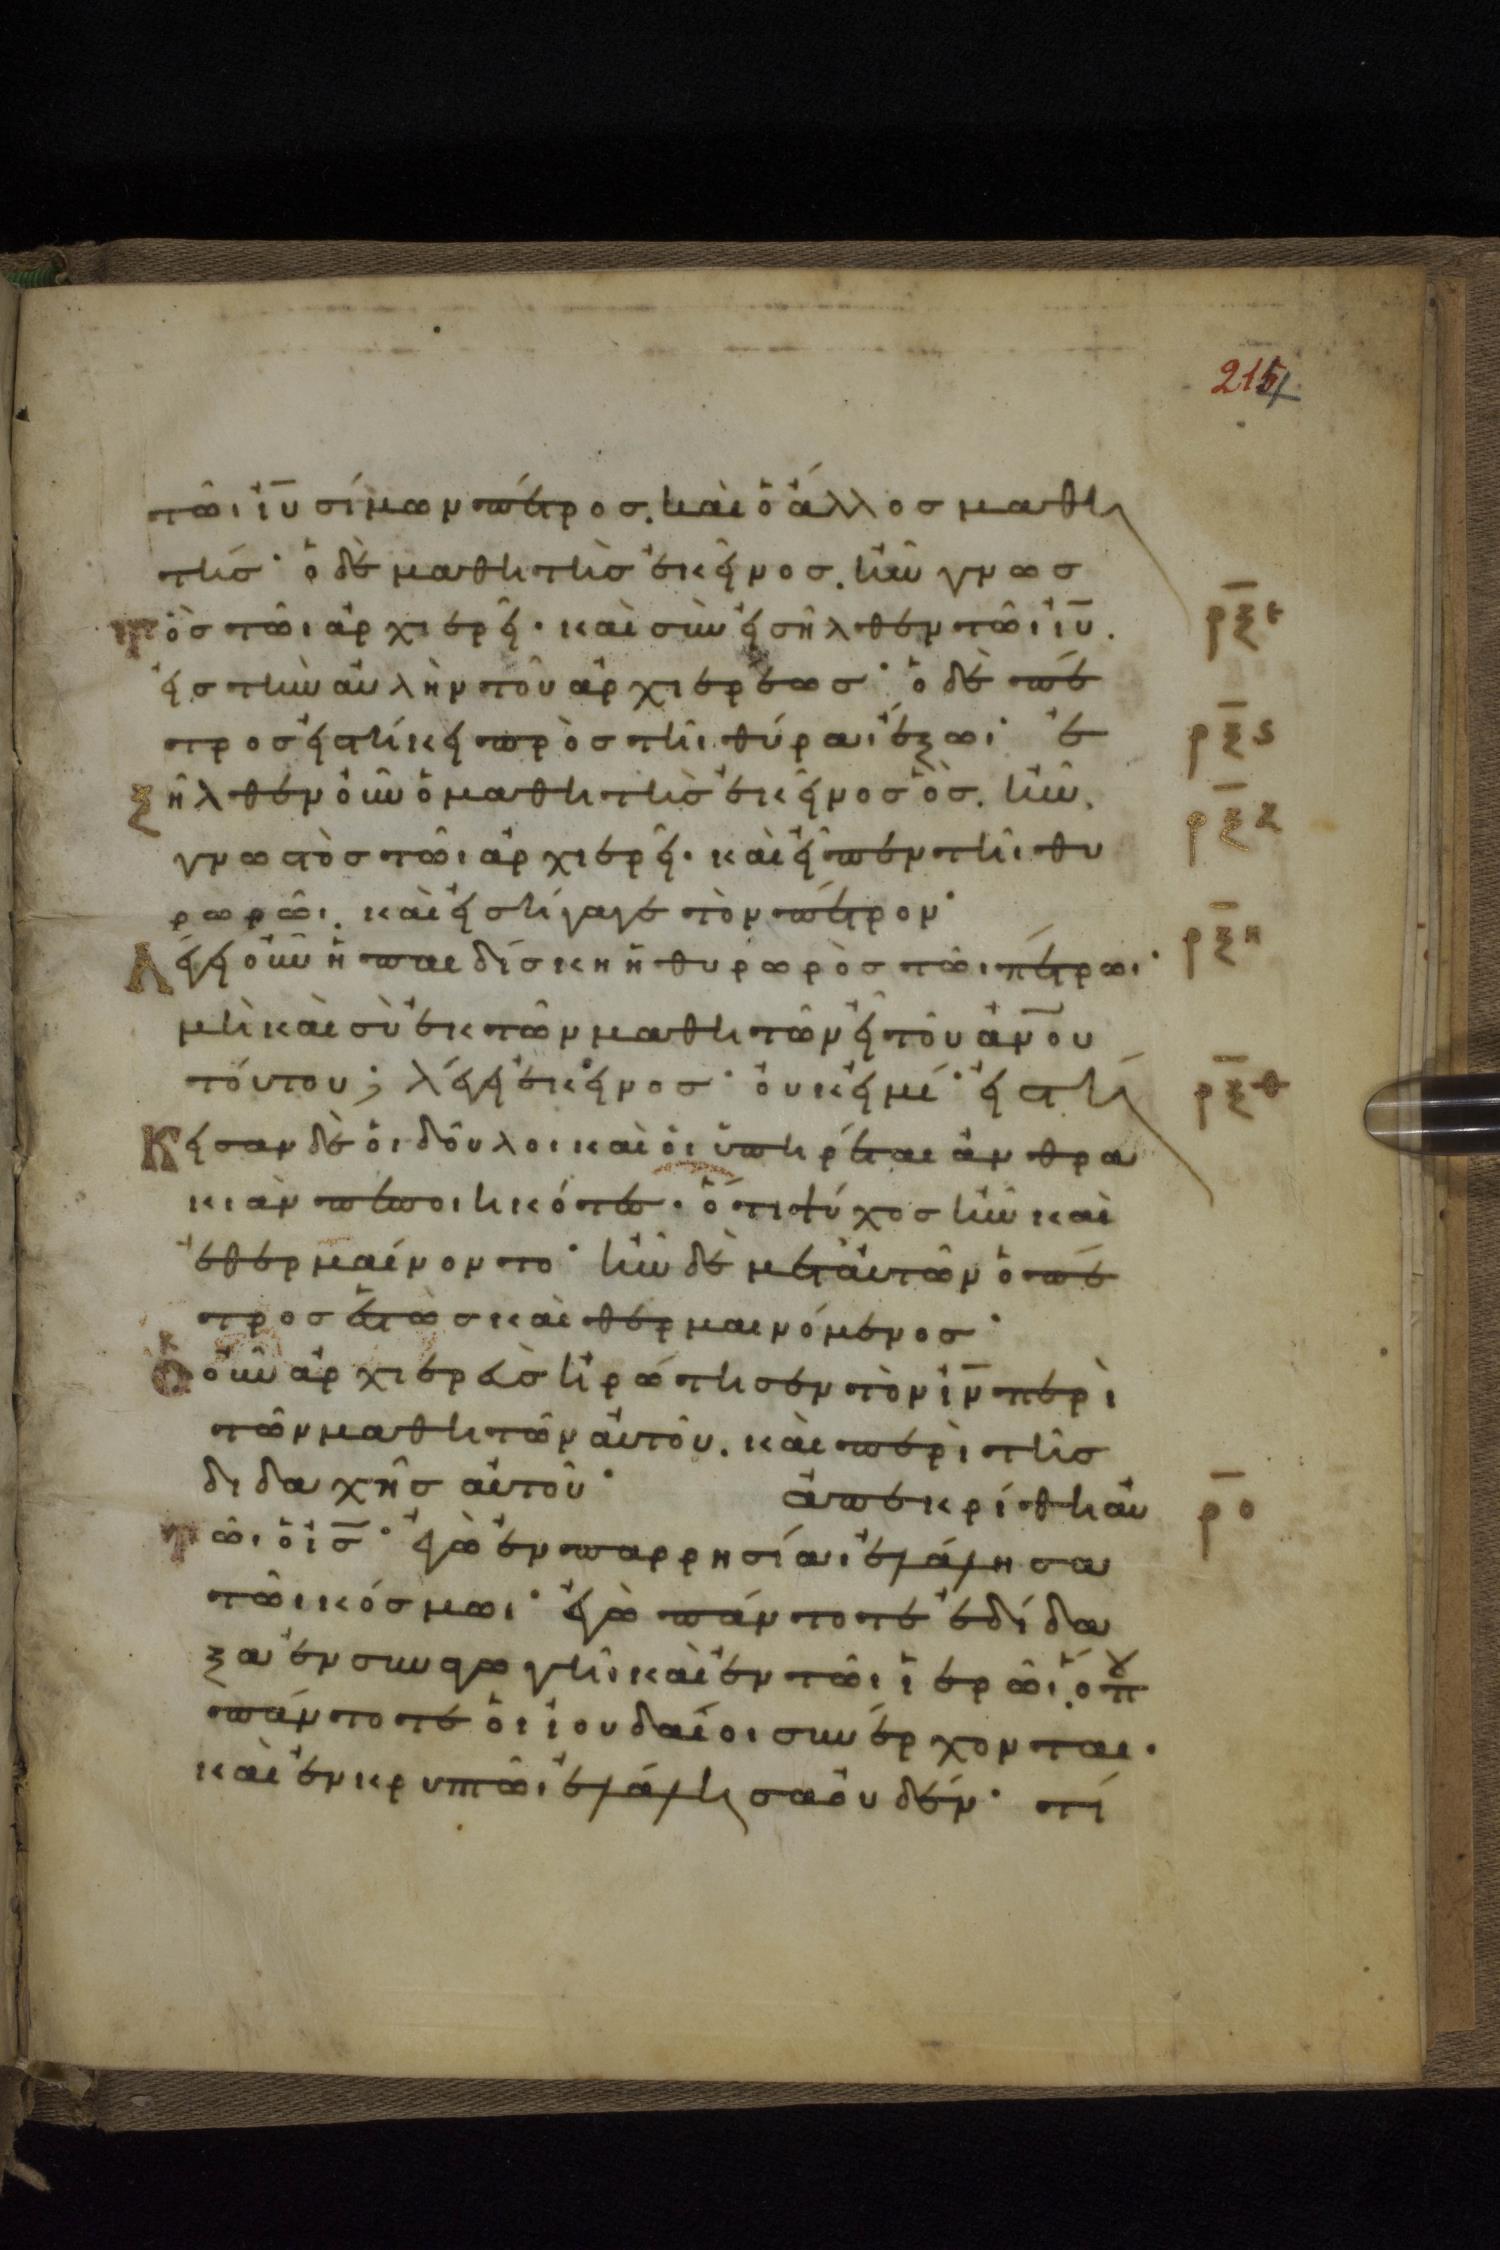 215
τῶι ἰῡ σίμων πέτρος. καὶ ὁ ἄλλος μαθη
τής· ὁ δὲ μαθητὴς ἐκεῖνος. ἦν γνωσ
τὸς τῶι ἀρχιερεῖ· καὶ συνεισῆλθεν τῶι ἰῡ. ρ̅ξ̅ε
εἰς τὴν αὐλὴν τοῦ ἀρχιερέως· ὁ δὲ πέ
προσειστήκει πρὸς τῆι θύραι ἔξωι· ἐ ρ̅ξ̅ς
ξῆλθεν οὖν ὁ μαθητὴς ἐκεῖνος ὃς. ἦν. ρ̅ξ̅ζ
γνωστὸς τῶι ἀρχιερεῖ· καὶ εἶπεν τῆι θυ
ρωρῶι. καὶ εἰσήγαγε τὸν πέτρον·
Λέγει οὖν ἡ παιδίσκη ἡ θυρωρὸς τῶι πέτρωι· ρ̅ξ̅η
μὴ καὶ σὺ ἐκ τῶν μαθητῶν εἶ τοῦ ἀν̅ου
τούτου; λέγει ἐκεῖνος· οὐκ εἰμέ· εἱστή
Κεισαν δὲ οἱ δοῦλοι καὶ οἱ ὑπηρέται ἀνθρα ρ̅ξ̅θ
κιὰν πεποιηκότες· ὅτι ψύχος ἦν καὶ
ἐθερμαίνοντο· ἦν δὲ μετ αὐτῶν ὁ πέ
προς ἑστὼς καὶ θερμαινόμενος·
Ὁ οὖν ἀρχιερεὺς ἠρώτησεν τὸν ἰν̅ περὶ
τῶν μαθητῶν αὐτοῦ. καὶ περὶ τῆς
διδαχῆς αὐτοῦ· ἀπεκρίθη αὐ ρ̅ο
τῶι ὁ ἰς̅· ἐγὼ ἐν παρρησίαι ἐλάλησα
τῶι κόσμωι· ἐγὼ πάντοτε ἐδίδα
ξα ἐν συναγωγῆι καὶ ἐν τῶι ἱερῶι. ὅπȣ
πάντοτε οἱ ἰουδαῖοι συνέρχονται·
καὶ ἐν κρυπτῶι ἐλάλησα οὐδέν· τί